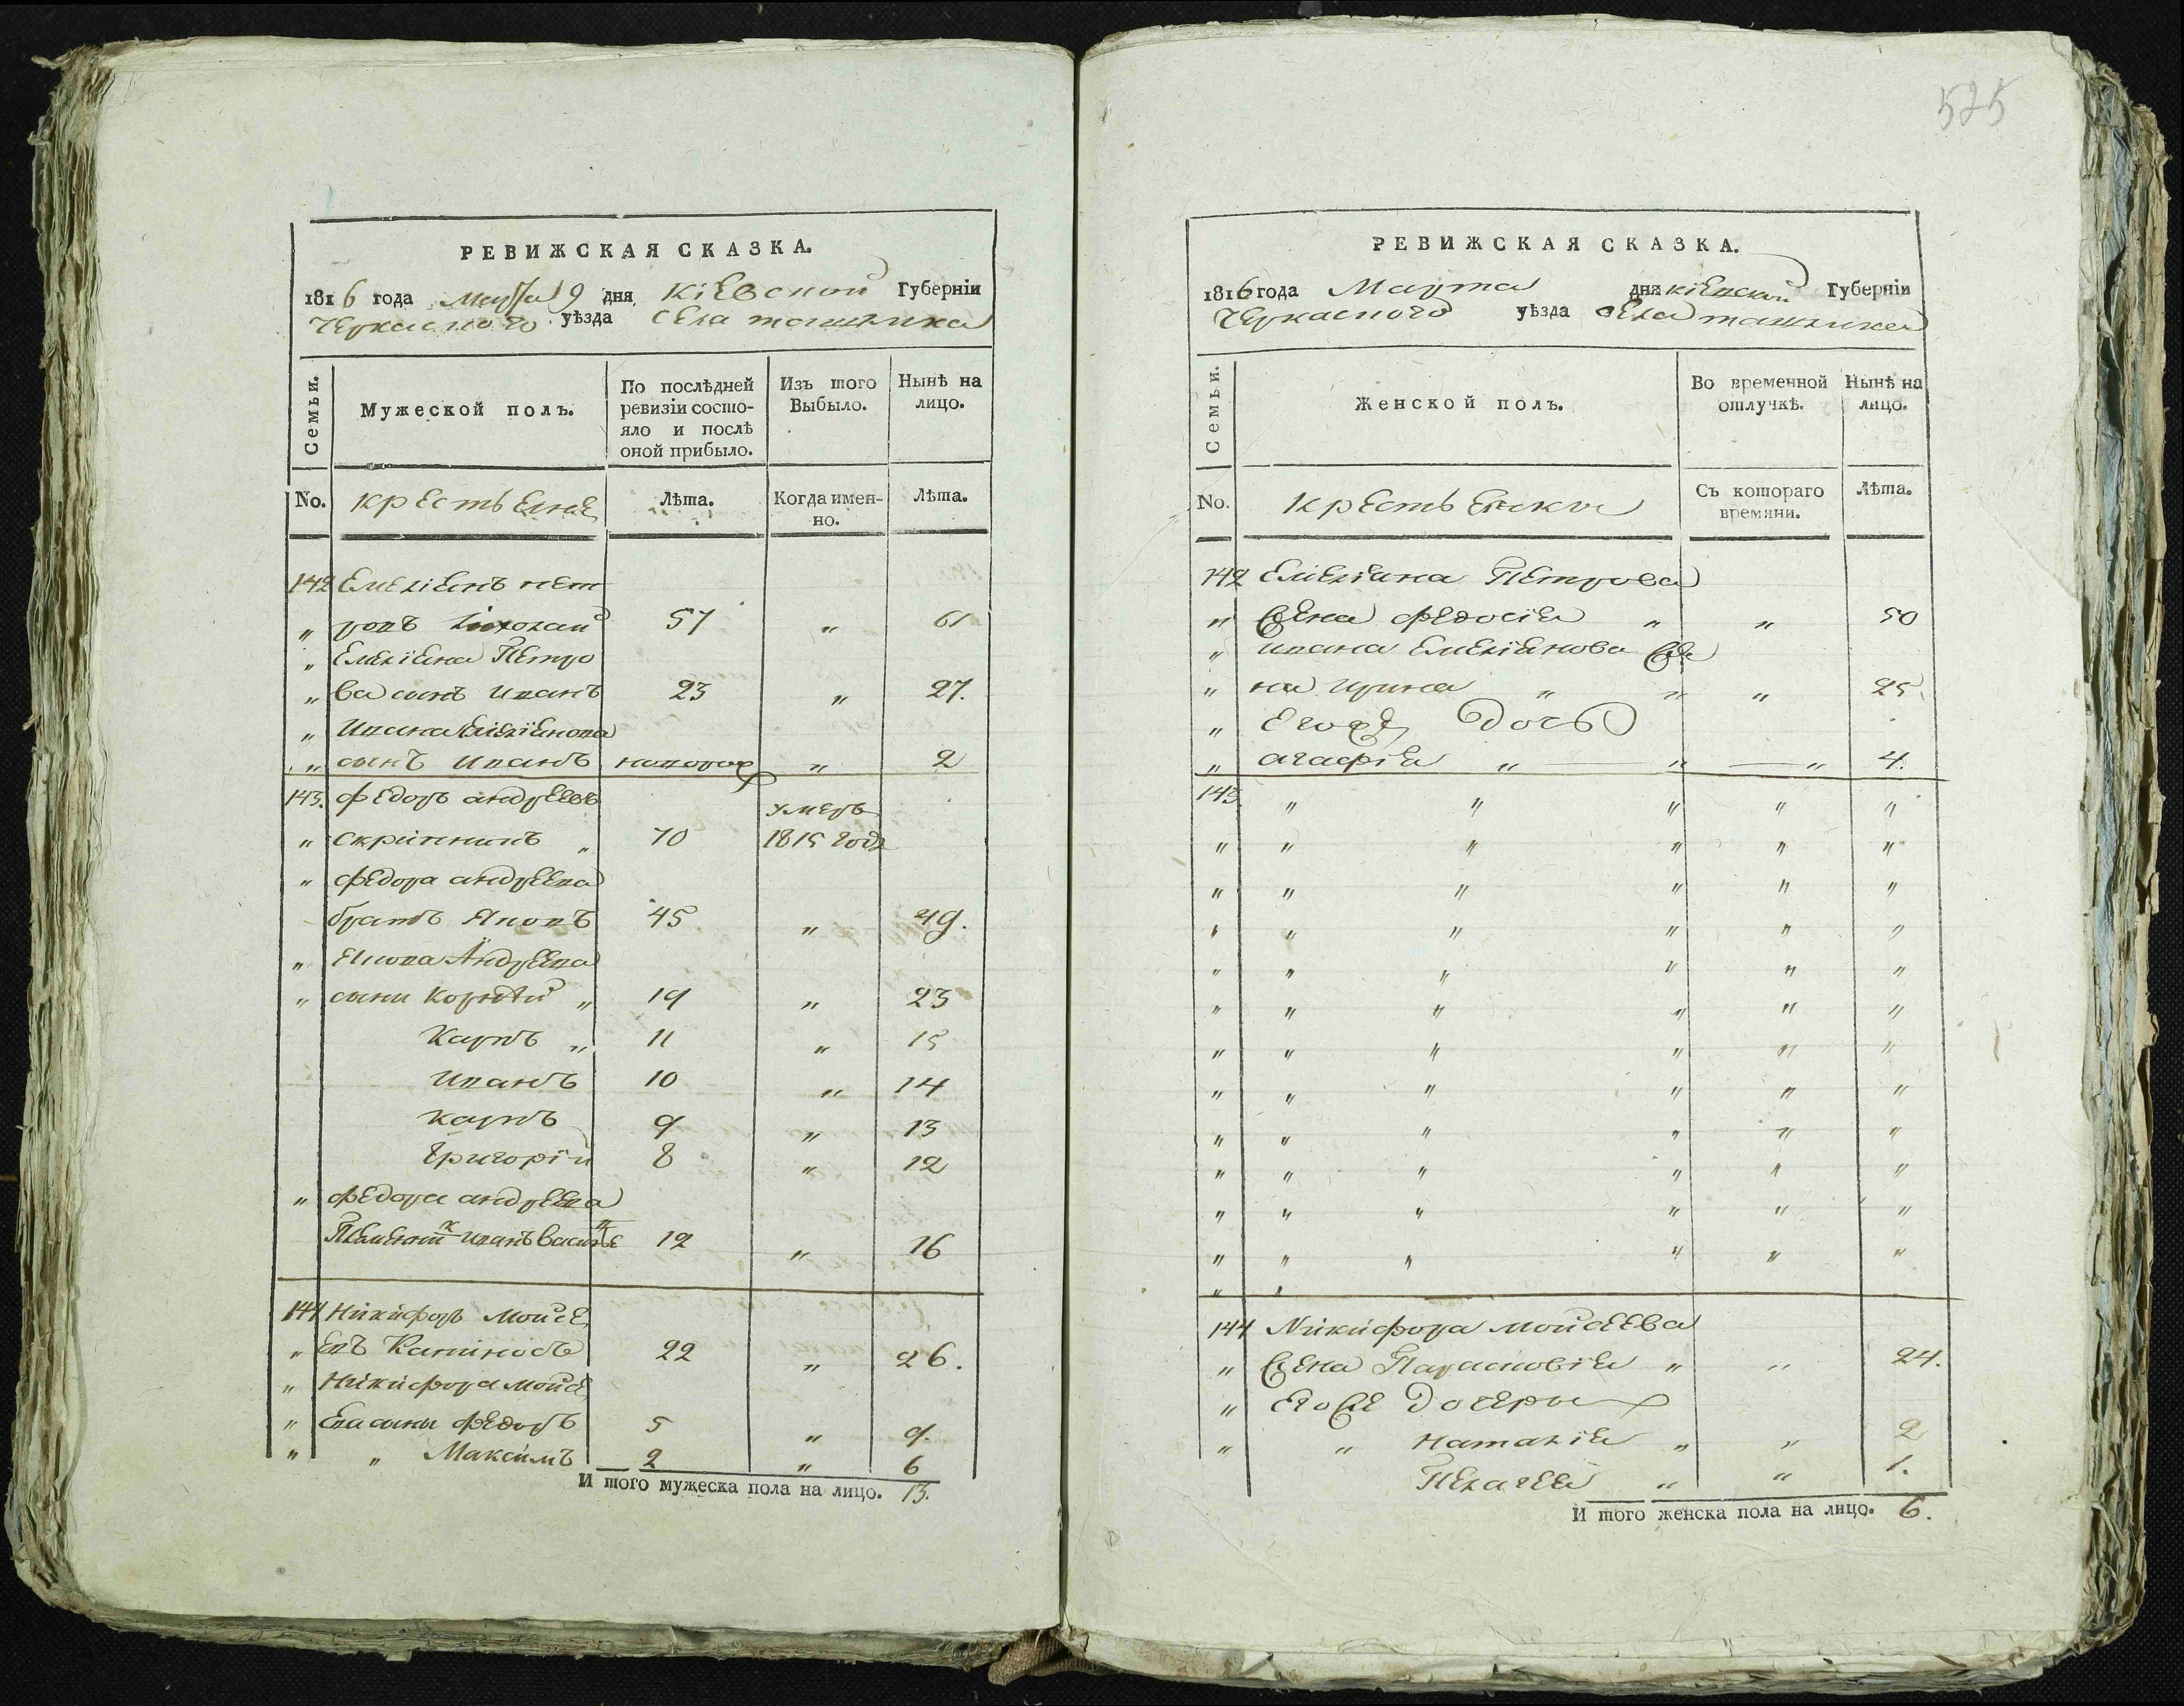 525
РЕВИЖСКАЯ СКАЗКА.
1816 года Марта 9 дня Кіевской Губерніи
Черкаского уѣзда села ташлика
Семьи.
Мужеской полъ.
По послѣдней ревизіи состояло и послѣ оной прибыло.
Изъ того Выбыло.
Нынѣ на лицо.
No. крестьяне Лѣта. Когда именно. Лѣта.
142 Емеліянъ пет
„ ровъ 57 „ 61
„ Емеліяна Петро
„ ва сынъ иванъ 23 „ 27.
„ Ивана Емеліянова
„ сынъ иванъ новорож „ 2
143. федоръ андреевъ умеръ
„ скрипникъ „ 70 1815 года
„ федора андреева
братъ Яковъ 45 „ 49.
„ Якова Андреева
„ сыни Корнѣй „ 19 „ 23
Карпъ „ 11 „ 15
иванъ 10 „ 14
карпъ 9 „ 13
Григорій 8 „ 12
„ федора андреева
Племеник иванъ василье 12 „ 16
144 Никифоръ Мойсе
„ евъ 22 „ 26.
„ Никифора Мойсе
„ ева сыни федоръ 5 „ 9.
„ „ Максимъ 2 „ 6
И того мужеска пола на лицо. 13.
РЕВИЖСКАЯ СКАЗКА.
1816 года Марта дня кіевской Губерніи
Черкаского уѣзда села ташлика
Семьи.
Женской полъ.
Во временной отлучкѣ.
Нынѣ на лицо.
No. крестьянки Съ котораго времяни. Лѣта.
142 Емеліяна Петрова
„ жена федосія „ „ 50
„ ивана Емеліянова же
„ на ирина „ „ „ 25.
„ Его же дочь
„ агафія „ „ „ 4.
143. „ „ „ „ „
„ „ „ „ „ „
„ „ „ „ „ „
„ „ „ „ „ „
„ „ „ „ „ „
„ „ „ „ „ „
„ „ „ „ „ „
„ „ „ „ „ „
„ „ „ „ „ „
„ „ „ „ „ „
„ „ „ „ „ „
„ „ „ „ „ „
„ „
144 Никифора мойсеева
„ жена Парасковія „ „ 24.
„ Его же дочеры
„ „ наталія „ „ 2
Пелагея „ „ 1.
И того женска пола на лицо. 6.